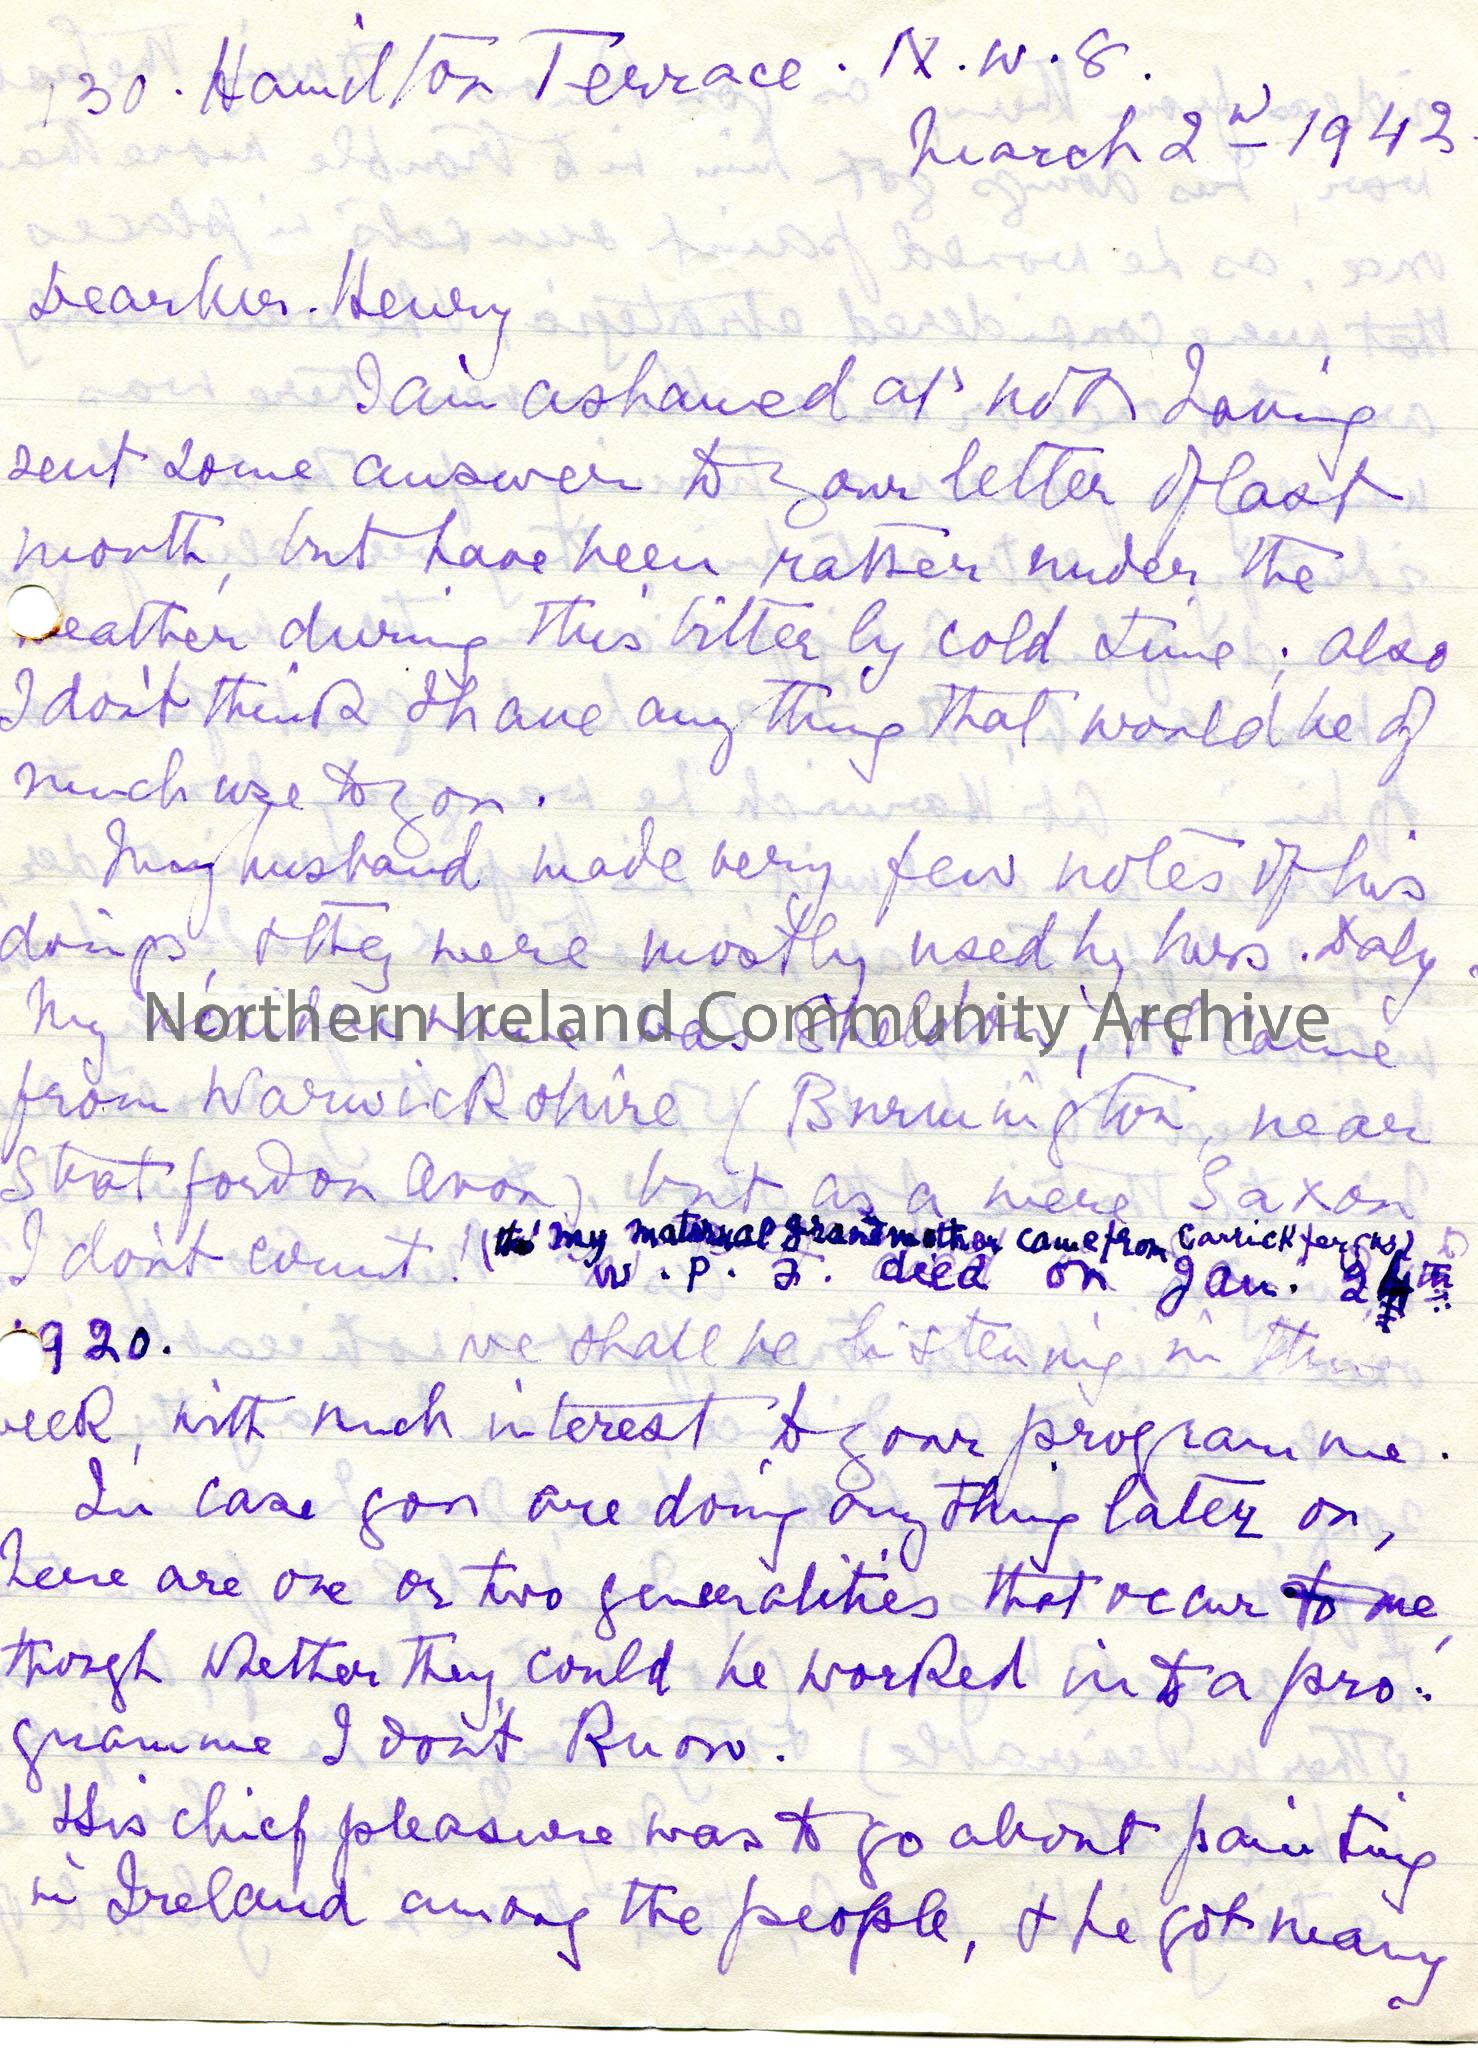 130. Hamilton Terrace. N.W.8.
March 2nd 1942
Dear Mrs. Henry
I am ashamed at not having
sent some answer to your letter of last
month, but have been rather under the
weather during this bitterly cold time; also
I don't think I have anything that would be of
much use to you.
My husband made very few notes of his
doings, & they were mostly used by Mrs. Daly.
My maiden name was Sheldon, & I came
Northern Ireland Community Archive
from Warwickshire (Burmington, near
Stratford on Avon), but as a mere Saxon
I don't count! (tho' my maternal grandmother came from Carrickfergus)
W. P. F. died on Jan. 24th
1920. we shall be listening in this
week, with much interest to your programme.
In case you are doing anything later on,
here are one or two generalities that occur to me,
though whether they could be worked into a pro-
gramme I don't know.
His chief pleasure was to go about painting
in Ireland among the people, & he got many